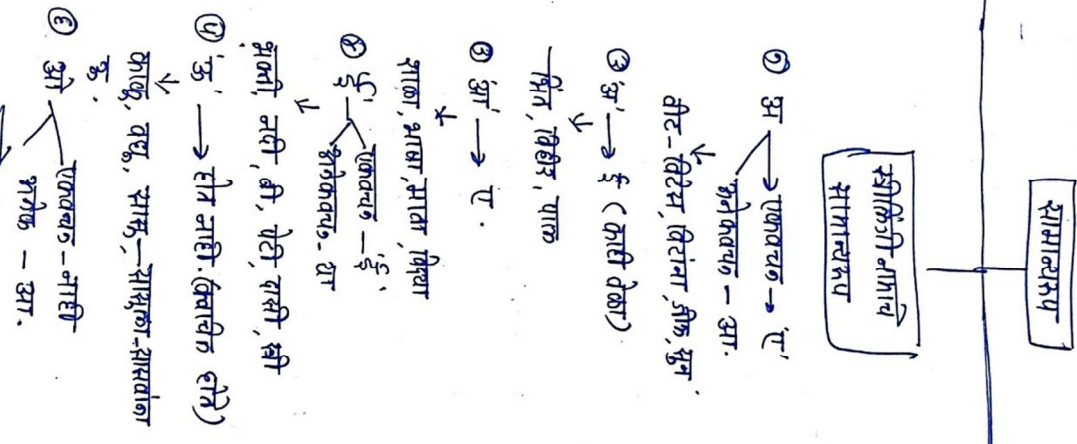 सामान्यरूप
स्त्रीलिंगी नामाचे
सामान्यरूप
① अ → एकवचन → 'ए'
अनेकवचन - आ.
वीट - विटेस, विटांना, जीभ, सून
② 'अ' → ई (काही वेळा)
भिंत, विहीर, पाल
③ 'आ' → ए.
शाळा, भाषा, माता, विद्या
④ 'ई' एकवचन - 'ई'
अनेकवचन - या
भक्ती, नदी, बी, पेटी, दासी, स्त्री
⑤ 'ऊ' → होत नाही. (क्वचित होते)
काकू, वधू, सासू - सासूला - सासवांना
ऊ.
⑥ ओ एकवचन - नाही
अनेक - आ.